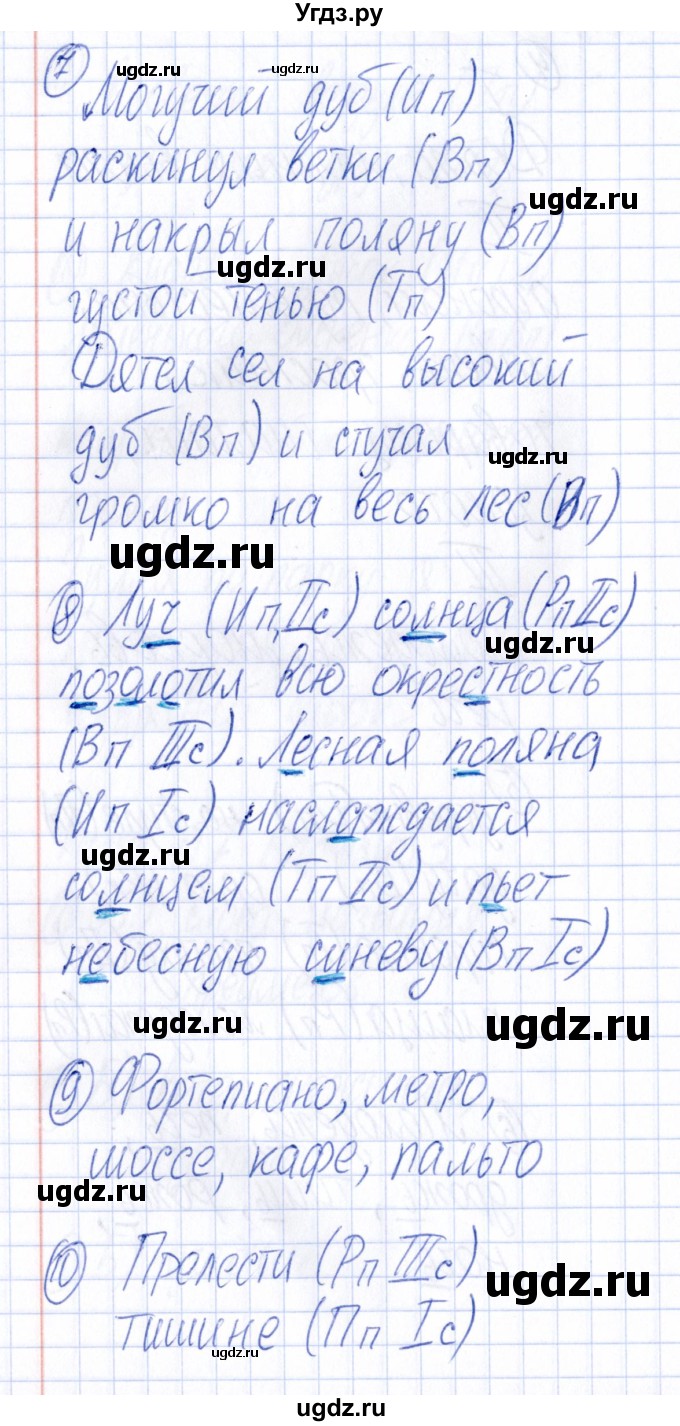 Угдз.ру
ugdz.ru
7 Могучий дуб (Ип)
раскинул ветки (Вп)
ugdz.ru
и накрыл поляну (Вп)
ugdz.ru
густой тенью (Тп)
Дятел сел на высокий
дуб (Вп) и стучал
ugdz.ru
громко на весь лес (Вп)
ugdz.ru
8 Луч (Ип, IIс) солнца (Рп IIс)
ugdz.ru
позолотил всю окрестность
(Вп IIIс). Лесная поляна
(Ип Iс) наслаждается
ugdz.ru
солнцем (Тп IIс) и пьет
небесную синеву (Вп Iс)
ugdz.ru
ugdz.ru
9 Фортепиано, метро,
шоссе, кафе, пальто
ugdz.ru
10 Прелести (Рп IIIс)
ugdz.ru
тишине (Пп Iс)
ugdz.ru
ugdz.ru